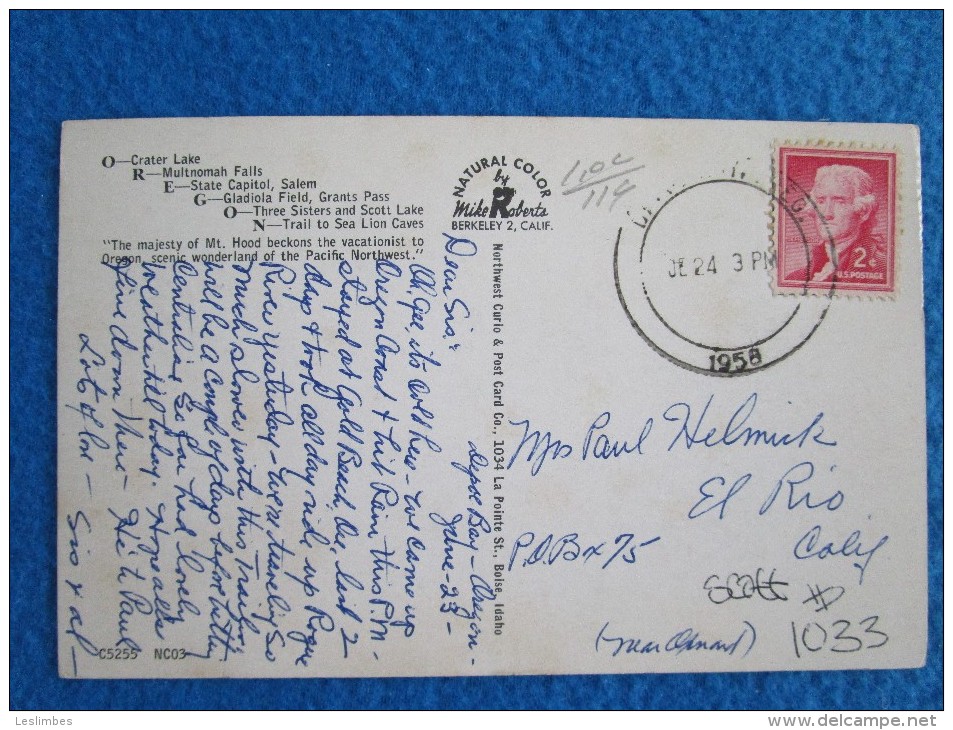 O—Crater Lake
R—Multnomah Falls
E—State Capitol, Salem
G—Gladiola Field, Grants Pass
O—Three Sisters and Scott Lake
N—Trail to Sea Lion Caves
"The majesty of Mt. Hood beckons the vacationist to
Oregon, scenic wonderland of the Pacific Northwest."
NATURAL COLOR
by
Mike Roberts
BERKELEY 2, CALIF.
1.00
114
JE 24 3 PM
1958
2¢
U.S. POSTAGE
Depoe Bay – Oregon –
June – 23 –
Dear Sis,
Oh Gee, its cold here – we came up
Oregon Coast & hit Rain this P.M.
stayed at Gold Beach, Ore, last 2
days & took all day ride up Rogue
River yesterday – We're traveling so
much slower with this Trailer
will be a couple of days before hitting
Centralia. So far had lovely
weather til today. Hope all's
fine down there – Hi to Paul
Lots of love –
Sis & al –
C5255 NC03
Northwest Curio & Post Card Co., 1034 La Pointe St., Boise, Idaho
Mrs Paul Helmick
El Rio
P.O. Bx 75
Calif
(near Oxnard)
Scott #
1033
Leslimbes
www.delcampe.net